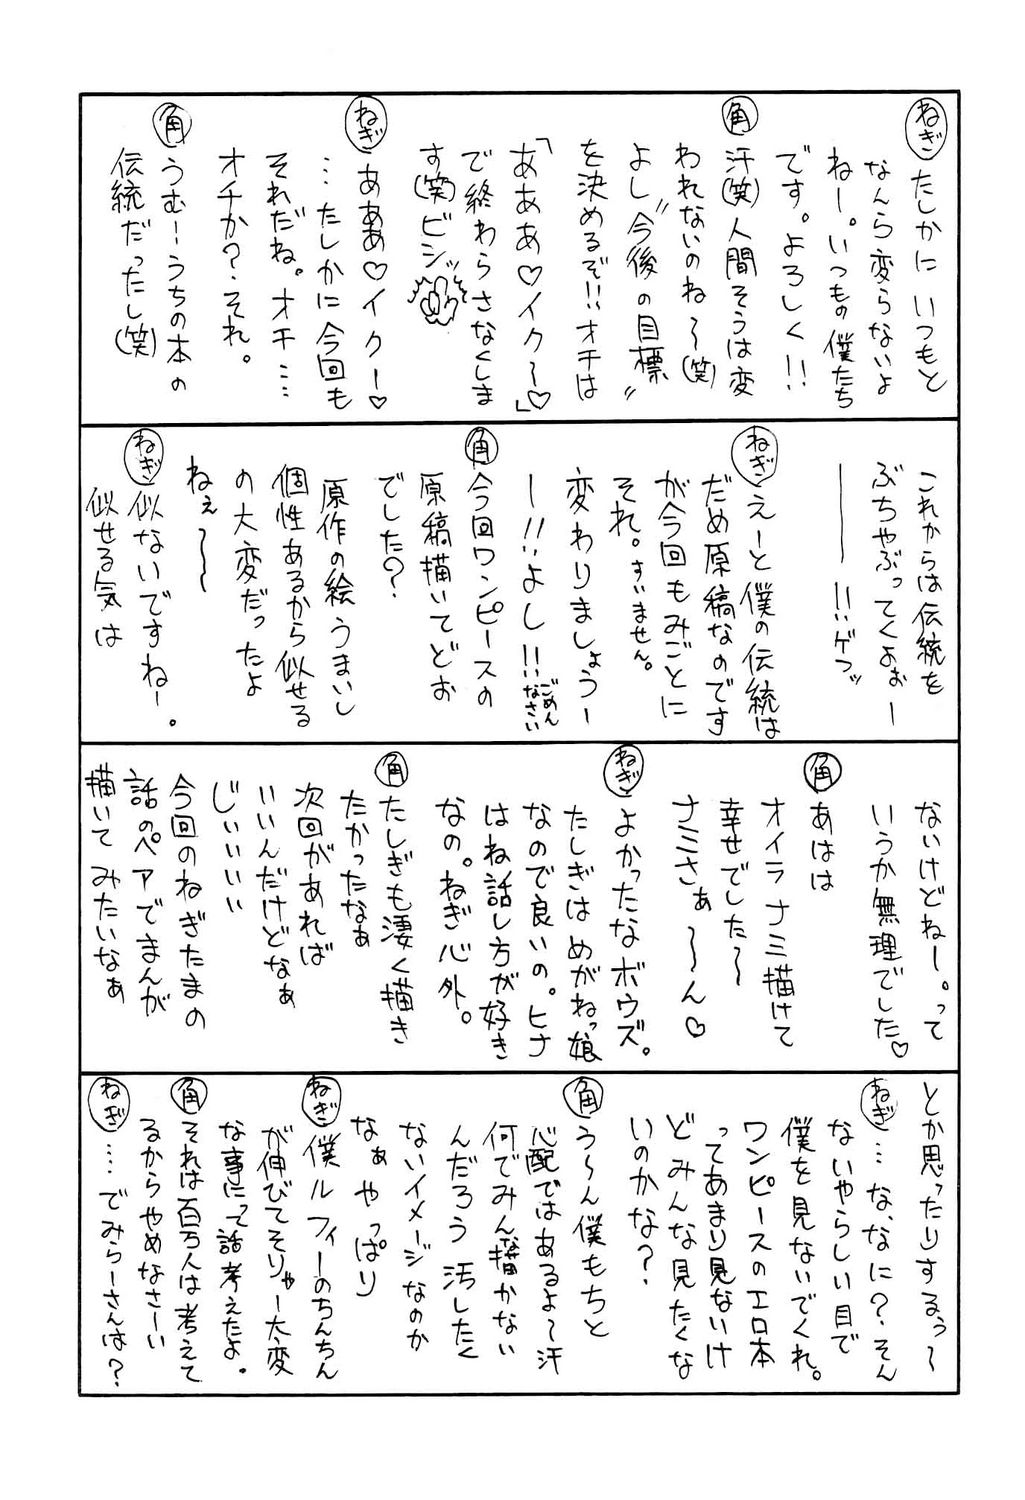 ねぎ たしかにいつもと
なんら変らないよ
ねー。いつもの僕たち
です。よろしく!!
角 汗(笑)人間そうは変
われないのね〜(笑)
よし〝今後の目標〟
を決めるぞ!!オチは
「あああ♡イク〜♡」
で終わらさなくしま
す(笑)ビシッ
ねぎ あああ♡イクー♡
…たしかに今回も
それだね。オチ…
オチか?それ。
角 うむーうちの本の
伝統だったし(笑)
これからは伝統を
ぶちやぶってくよぉー
――!!ゲフッ
ねぎ えーと僕の伝統は
だめ原稿なのです
が今回もみごとに
それ。すいません。
変わりましょうー
ー!!よし!!ごめんなさい
角 今回ワンピースの
原稿描いてどお
でした?
原作の絵うまいし
個性あるから似せる
の大変だったよ
ねぇ〜〜
ねぎ 似ないですねー。
似せる気は
ないけどねー。って
いうか無理でした♡
角 あはは
オイラナミ描けて
幸せでした〜
ナミさぁ〜〜ん♡
ねぎ よかったなボウズ。
たしぎはめがねっ娘
なので良いの。ヒナ
はね話し方が好き
なの。ねぎ心外。
角 たしぎも凄く描き
たかったなぁ
次回があれば
いいんだけどなぁ
じぃぃぃぃ
今回のねぎたまの
話のペアでまんが
描いてみたいなぁ
とか思ったりするぅ〜
ねぎ …な、なに?そん
ないやらしい目で
僕を見ないでくれ。
ワンピースのエロ本
ってあまり見ないけ
どみんな見たくな
いのかな?
角 う〜ん僕もちと
心配ではあるよ〜汗
何でみんな描かない
んだろう汚したく
ないイメージなのか
なぁやっぱり
ねぎ 僕ルフィーのちんちん
が伸びてそりゃー大変
な事にって話考えたよ。
角 それは百万人は考えて
るからやめなさーい
ねぎ ……でみらーさんは?